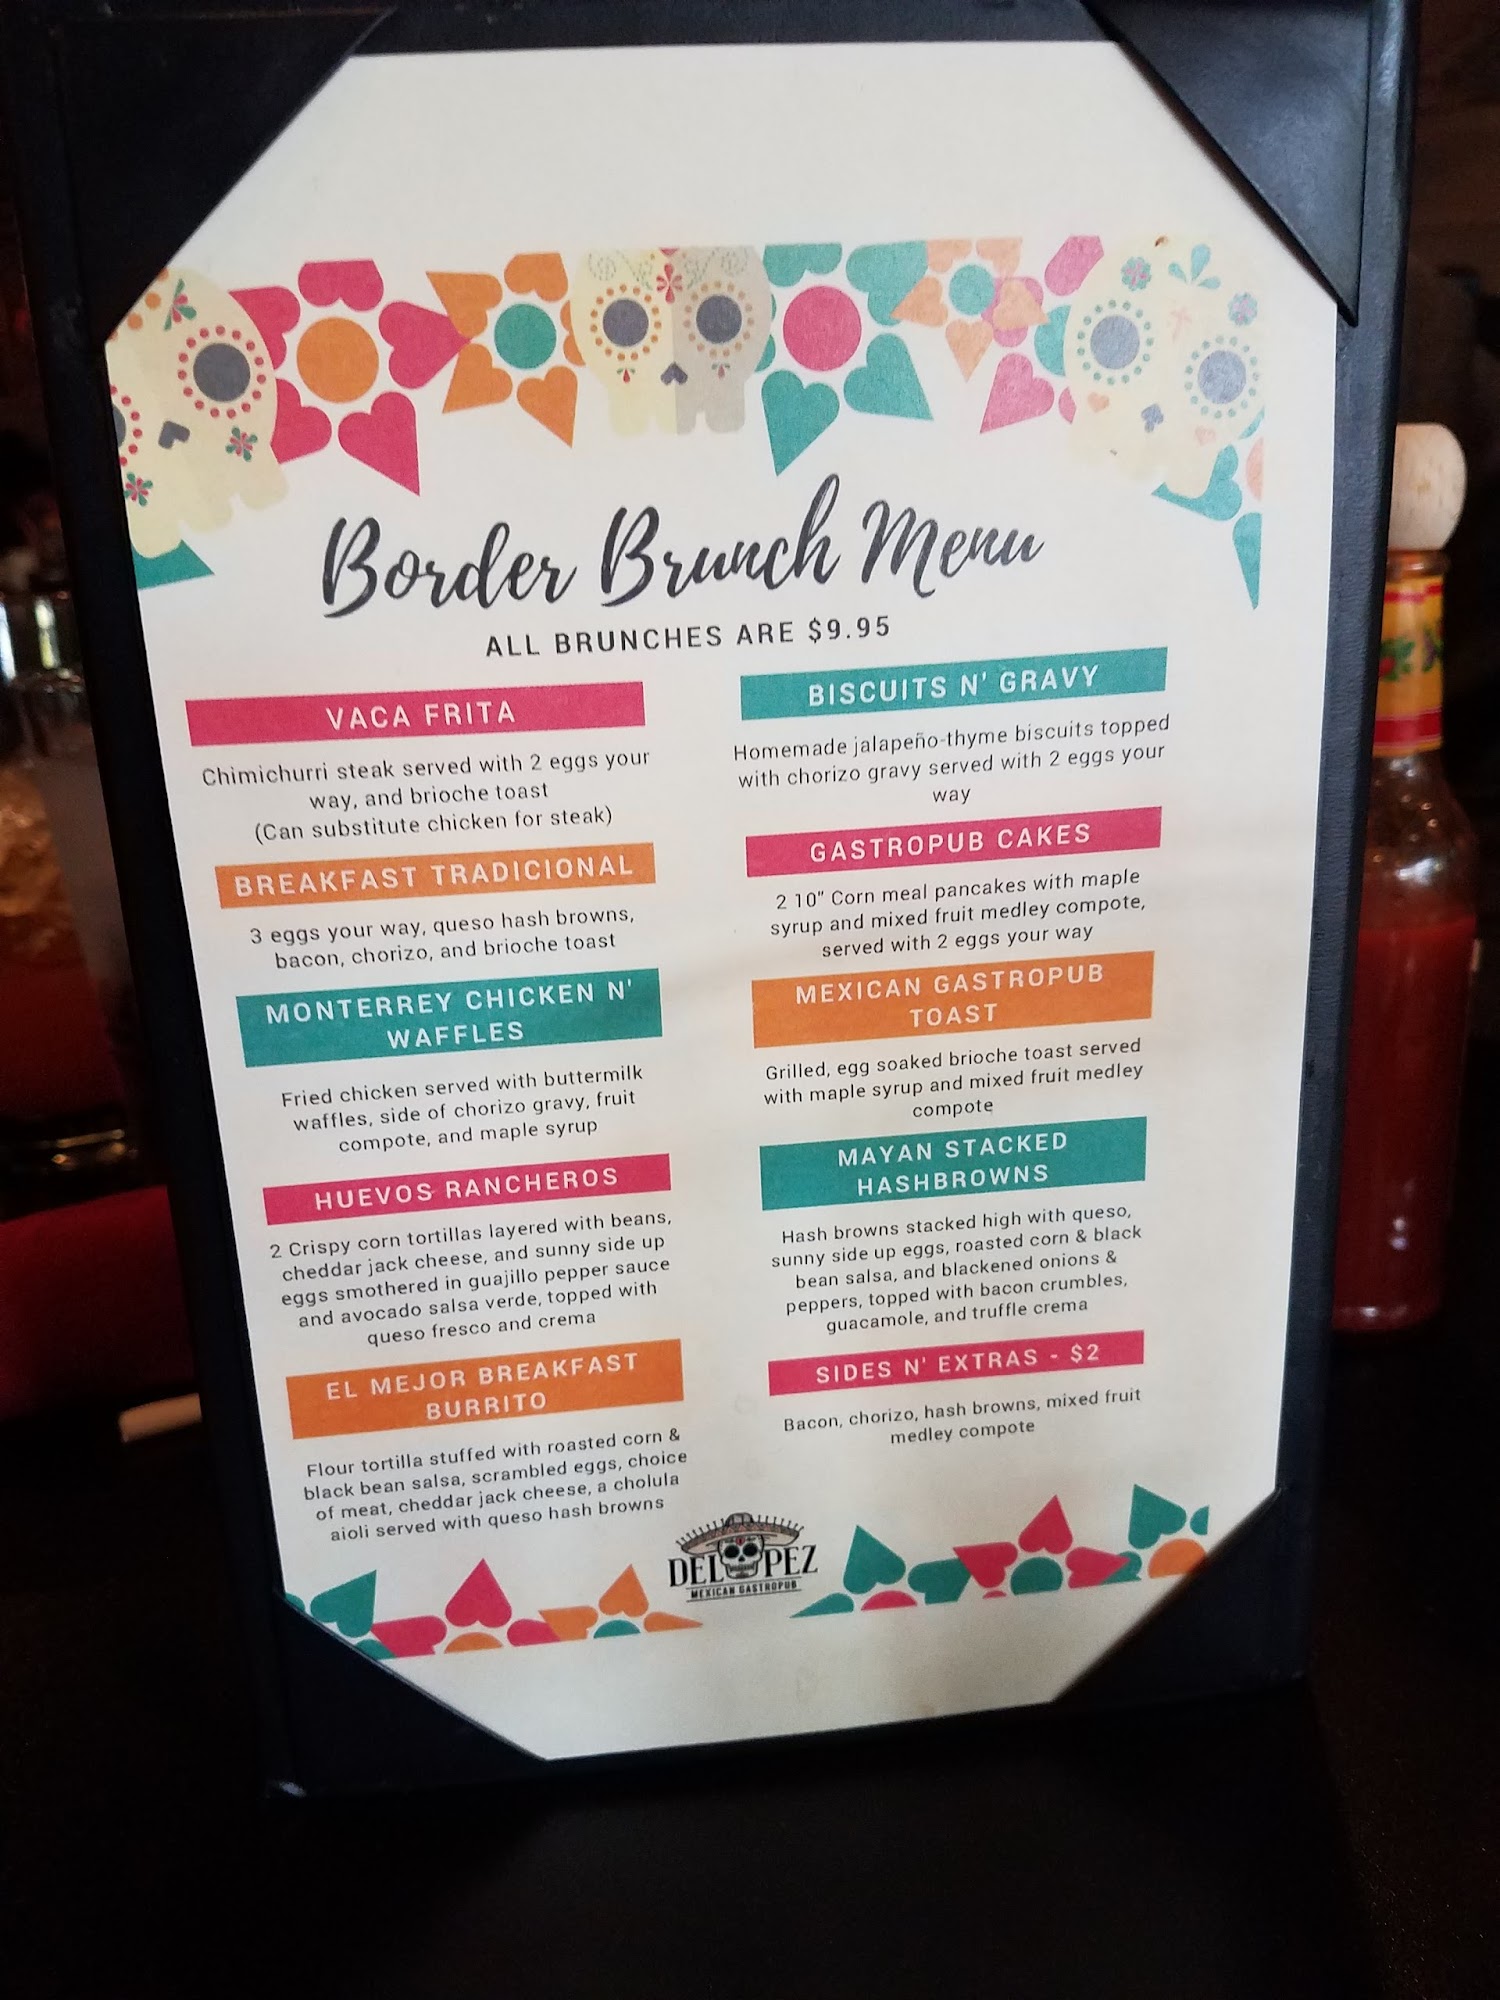 Border Brunch Menu
ALL BRUNCHES ARE $9.95
VACA FRITA
Chimichurri steak served with 2 eggs your
way, and brioche toast
(Can substitute chicken for steak)
BREAKFAST TRADICIONAL
3 eggs your way, queso hash browns,
bacon, chorizo, and brioche toast
MONTERREY CHICKEN N'
WAFFLES
Fried chicken served with buttermilk
waffles, side of chorizo gravy, fruit
compote, and maple syrup
HUEVOS RANCHEROS
2 Crispy corn tortillas layered with beans,
cheddar jack cheese, and sunny side up
eggs smothered in guajillo pepper sauce
and avocado salsa verde, topped with
queso fresco and crema
EL MEJOR BREAKFAST
BURRITO
Flour tortilla stuffed with roasted corn &
black bean salsa, scrambled eggs, choice
of meat, cheddar jack cheese, a cholula
aioli served with queso hash browns
BISCUITS N' GRAVY
Homemade jalapeño-thyme biscuits topped
with chorizo gravy served with 2 eggs your
way
GASTROPUB CAKES
2 10" Corn meal pancakes with maple
syrup and mixed fruit medley compote,
served with 2 eggs your way
MEXICAN GASTROPUB
TOAST
Grilled, egg soaked brioche toast served
with maple syrup and mixed fruit medley
compote
MAYAN STACKED
HASHBROWNS
Hash browns stacked high with queso,
sunny side up eggs, roasted corn & black
bean salsa, and blackened onions &
peppers, topped with bacon crumbles,
guacamole, and truffle crema
SIDES N' EXTRAS - $2
Bacon, chorizo, hash browns, mixed fruit
medley compote
DELOPEZ
MEXICAN GASTROPUB